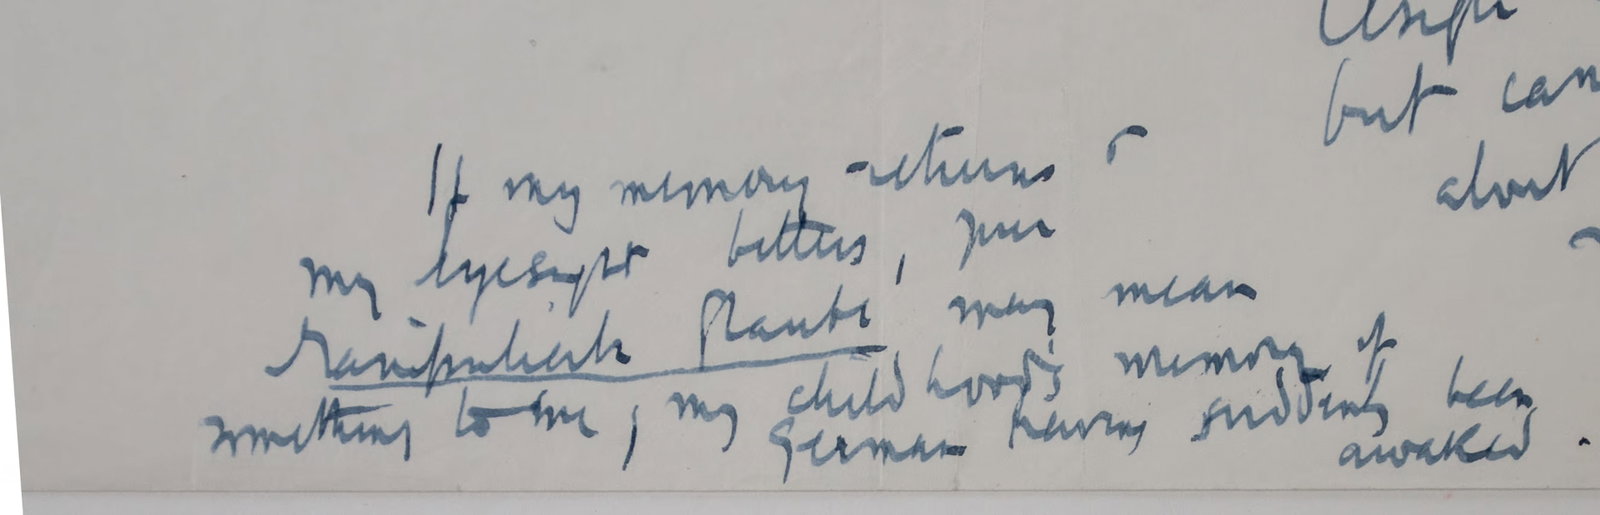 but can
about
If my memory returns &
my eyesight betters, your
may mean
something to me; my childhood's memory of
German having suddenly been
awaked.